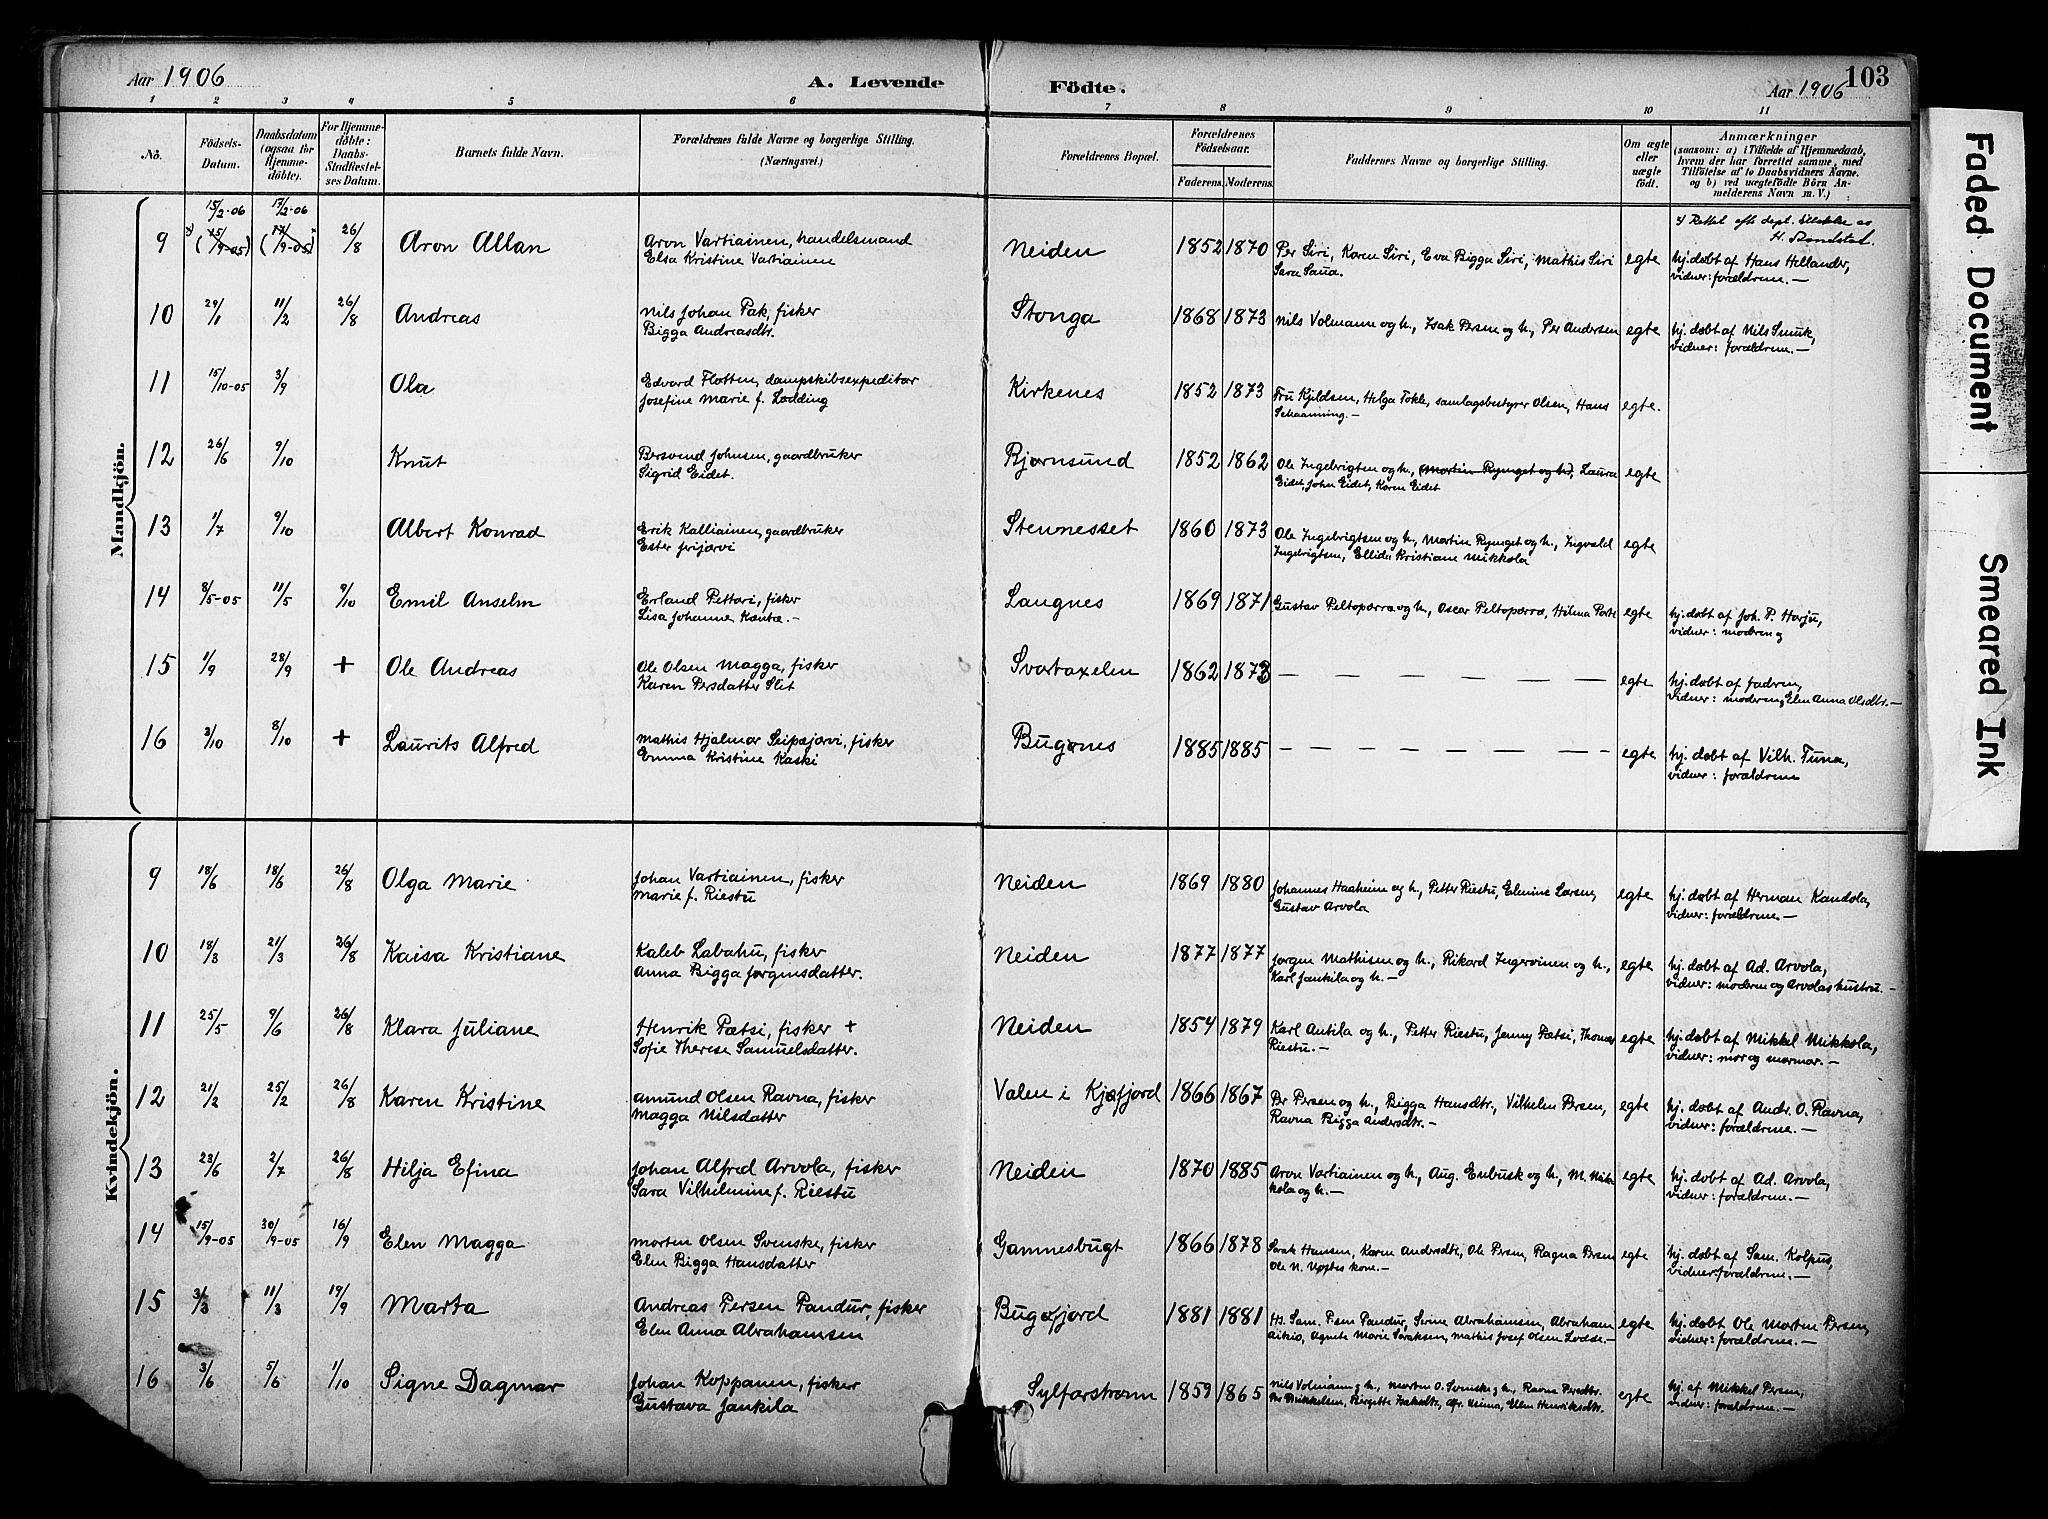 Aar 1906
A. Levende
Födte.
Aar 1906
103
1 2 3 4 5 6 7 8 9 10 11
No.
Födsels-
Datum.
Daabsdatum
(ogsaa for
Hjemme-
döbte).
For Hjemme-
döbte:
Daabs-
Stadfæstel-
ses Datum.
Barnets fulde Navn.
Forældrenes fulde Navne og borgerlige Stilling.
(Næringsvei.)
Forældrenes Bopæl.
Forældrenes
Födselsaar.
Faderens. Moderens.
Faddernes Navne og borgerlige Stilling.
Om ægte
eller
uægte
født.
Anmærkninger
(saasom: a) i Tilfælde af Hjemmedaab,
hvem der har forrettet samme, med
Tilföielse af to Daabsvidners Navne,
og b) ved uægtefödte Börn An-
melderens Navn m. V.)
Mandkjön.
15/2-06 17/2-06
9 (15/9-05) (17/9-05) 26/8 Aron Allan Aron Vartiainen, handelsmand Neiden 1852 1870 Per Siri, Karen Siri, Eva Bigga Siri, Mathis Siri egte hj. døbt af Hans Hillander,
Elsa Kristine Vartiainen Sara Saua. vidner: forældrene. —
10 29/1 11/2 26/8 Andreas Nils Johan Pak, fisker Stonga 1868 1873 Nils Volmann og h., Isak Persen og h., Per Andersen egte hj. døbt af Nils Smuk,
Bigga Andreasdtr. vidner: forældrene. —
11 15/10-05 3/9 Ola Edvard Flotten, dampskibsexpeditør Kirkenes 1852 1873 Fru Kjeldsen, Helga Fokle, samlagsbestyrer Olsen, Hans egte.
Josefine Marie f. Lødding Schaanning. —
12 26/6 9/10 Knut Bersvend Johnsen, gaardbruker Bjørnsund 1852 1862 Ole Ingebrigtsen og h., (Martin Rynget og h.), Laura egte
Sigrid Eidet. Eidet, John Eidet, Karen Eidet
13 1/7 9/10 Albert Konrad Erik Kalliainen, gaardbruker Stennesset 1860 1873 Ole Ingebrigtsen og h., Martin Rynget og h., Ingvald egte
Ester Ingebrigtsen, Ellida Kristiane Mikkola
14 8/5-05 11/5 9/10 Emil Anselm Erland Pettari, fisker Langnes 1869 1871 Gustav Peltopørrø og h., Oscar Peltopørrø, Hilma egte hj. døbt af Joh. P. Harju,
Lisa Johanne vidner: modren og
15 1/9 28/9 + Ole Andreas Ole Olsen Magga, fisker Svartaxelen 1862 1873 — — — — — — egte hj. døbt af fadren,
Karen Persdatter Slit vidner: modren, Elen Anna Olsdtr. —
16 3/10 8/10 + Laurits Alfred Mathis Hjalmar Seipæjærvi, fisker Bugønes 1885 1885 — — — — — — egte hj. døbt af Vilh. Tuna,
Emma Kristine Kaski vidner: forældrene
Kvindekjön.
9 18/6 18/6 26/8 Olga Marie Johan Vartiainen, fisker Neiden 1869 1880 Johannes Haaheim og h., Petter Riestu, Elmine Larsen, egte hj. døbt af Herman Kandola,
Marie f. Riestu Gustav Arvola vidner: forældrene. —
10 18/3 21/3 26/8 Kaisa Kristiane Kaleb Labahu, fisker Neiden 1877 1877 Jørgen Mathisen og h., Rikard Ingervinen og h., egte hj. døbt af Ad. Arvola,
Anna Bigga Jørgensdatter. Karl Jankila og h. — vidner: modren og Arvolas hustru. —
11 25/5 9/6 26/8 Klara Juliane Henrik Pætsi, fisker + Neiden 1854 1879 Karl Antila og h., Petter Riestu, Jenny Pætsi, Thomas egte hj. døbt af Mikkel Mikkola,
Sofie Therese Samuelsdatter. Riestu. — vidner: mor og mormor. —
12 21/2 25/2 26/8 Karen Kristine Amund Olsen Ravna, fisker Valen i Kjøfjord 1866 1867 Per Persen og h., Bigga Hansdtr., Vilhelm Persen, egte hj. døbt af Andr. O. Ravna,
Magga Nilsdatter Ravna Bigga Andersdtr. — vidner: forældrene. —
13 23/6 2/7 26/8 Hilja Efina Johan Alfred Arvola, fisker Neiden 1870 1885 Aron Vartiainen og h., Aug. Enbusk og h., M. Mik- egte hj. døbt af Ad. Arvola,
Sara Vilhelmine f. Riestu kola og h. — vidner: forældrene. —
14 15/9-05 30/9-05 16/9 Elen Magga Morten Olsen Svenske, fisker Gamnesbugt 1866 1878 Sarak Hansen, Karen Andersdtr, Ole Persen, Ragna Persen egte hj. døbt af Sam. Kolpus,
Elen Bigga Hansdatter Ole N. kone. — vidner: forældrene. —
15 3/3 11/3 19/9 Marta Andreas Persen Pandur, fisker Bugøfjord 1881 1881 Hs. Sam. Psen Pandur, Serine Abrahamsen, Abraham egte hj. døbt Ole Morten Persen,
Elen Anna Abrahamsen Aikio, Agnete Marie Saraksen, Mathis Josef Olsen — vidner: forældrene. —
16 3/6 5/6 1/10 Signe Dagmar Johan Koppanen, fisker Sylfarstrøm 1859 1865 Nils Volmann og h., Morten O. Svenske og h., Ravna Persdtr. egte hj. af Mikkel Persen,
Gustava Jankila Per Mikkelsen, Birgitte Isaksdtr, Elen Henriksdtr. vidner: forældrene. —
Faded Document
Smeared Ink